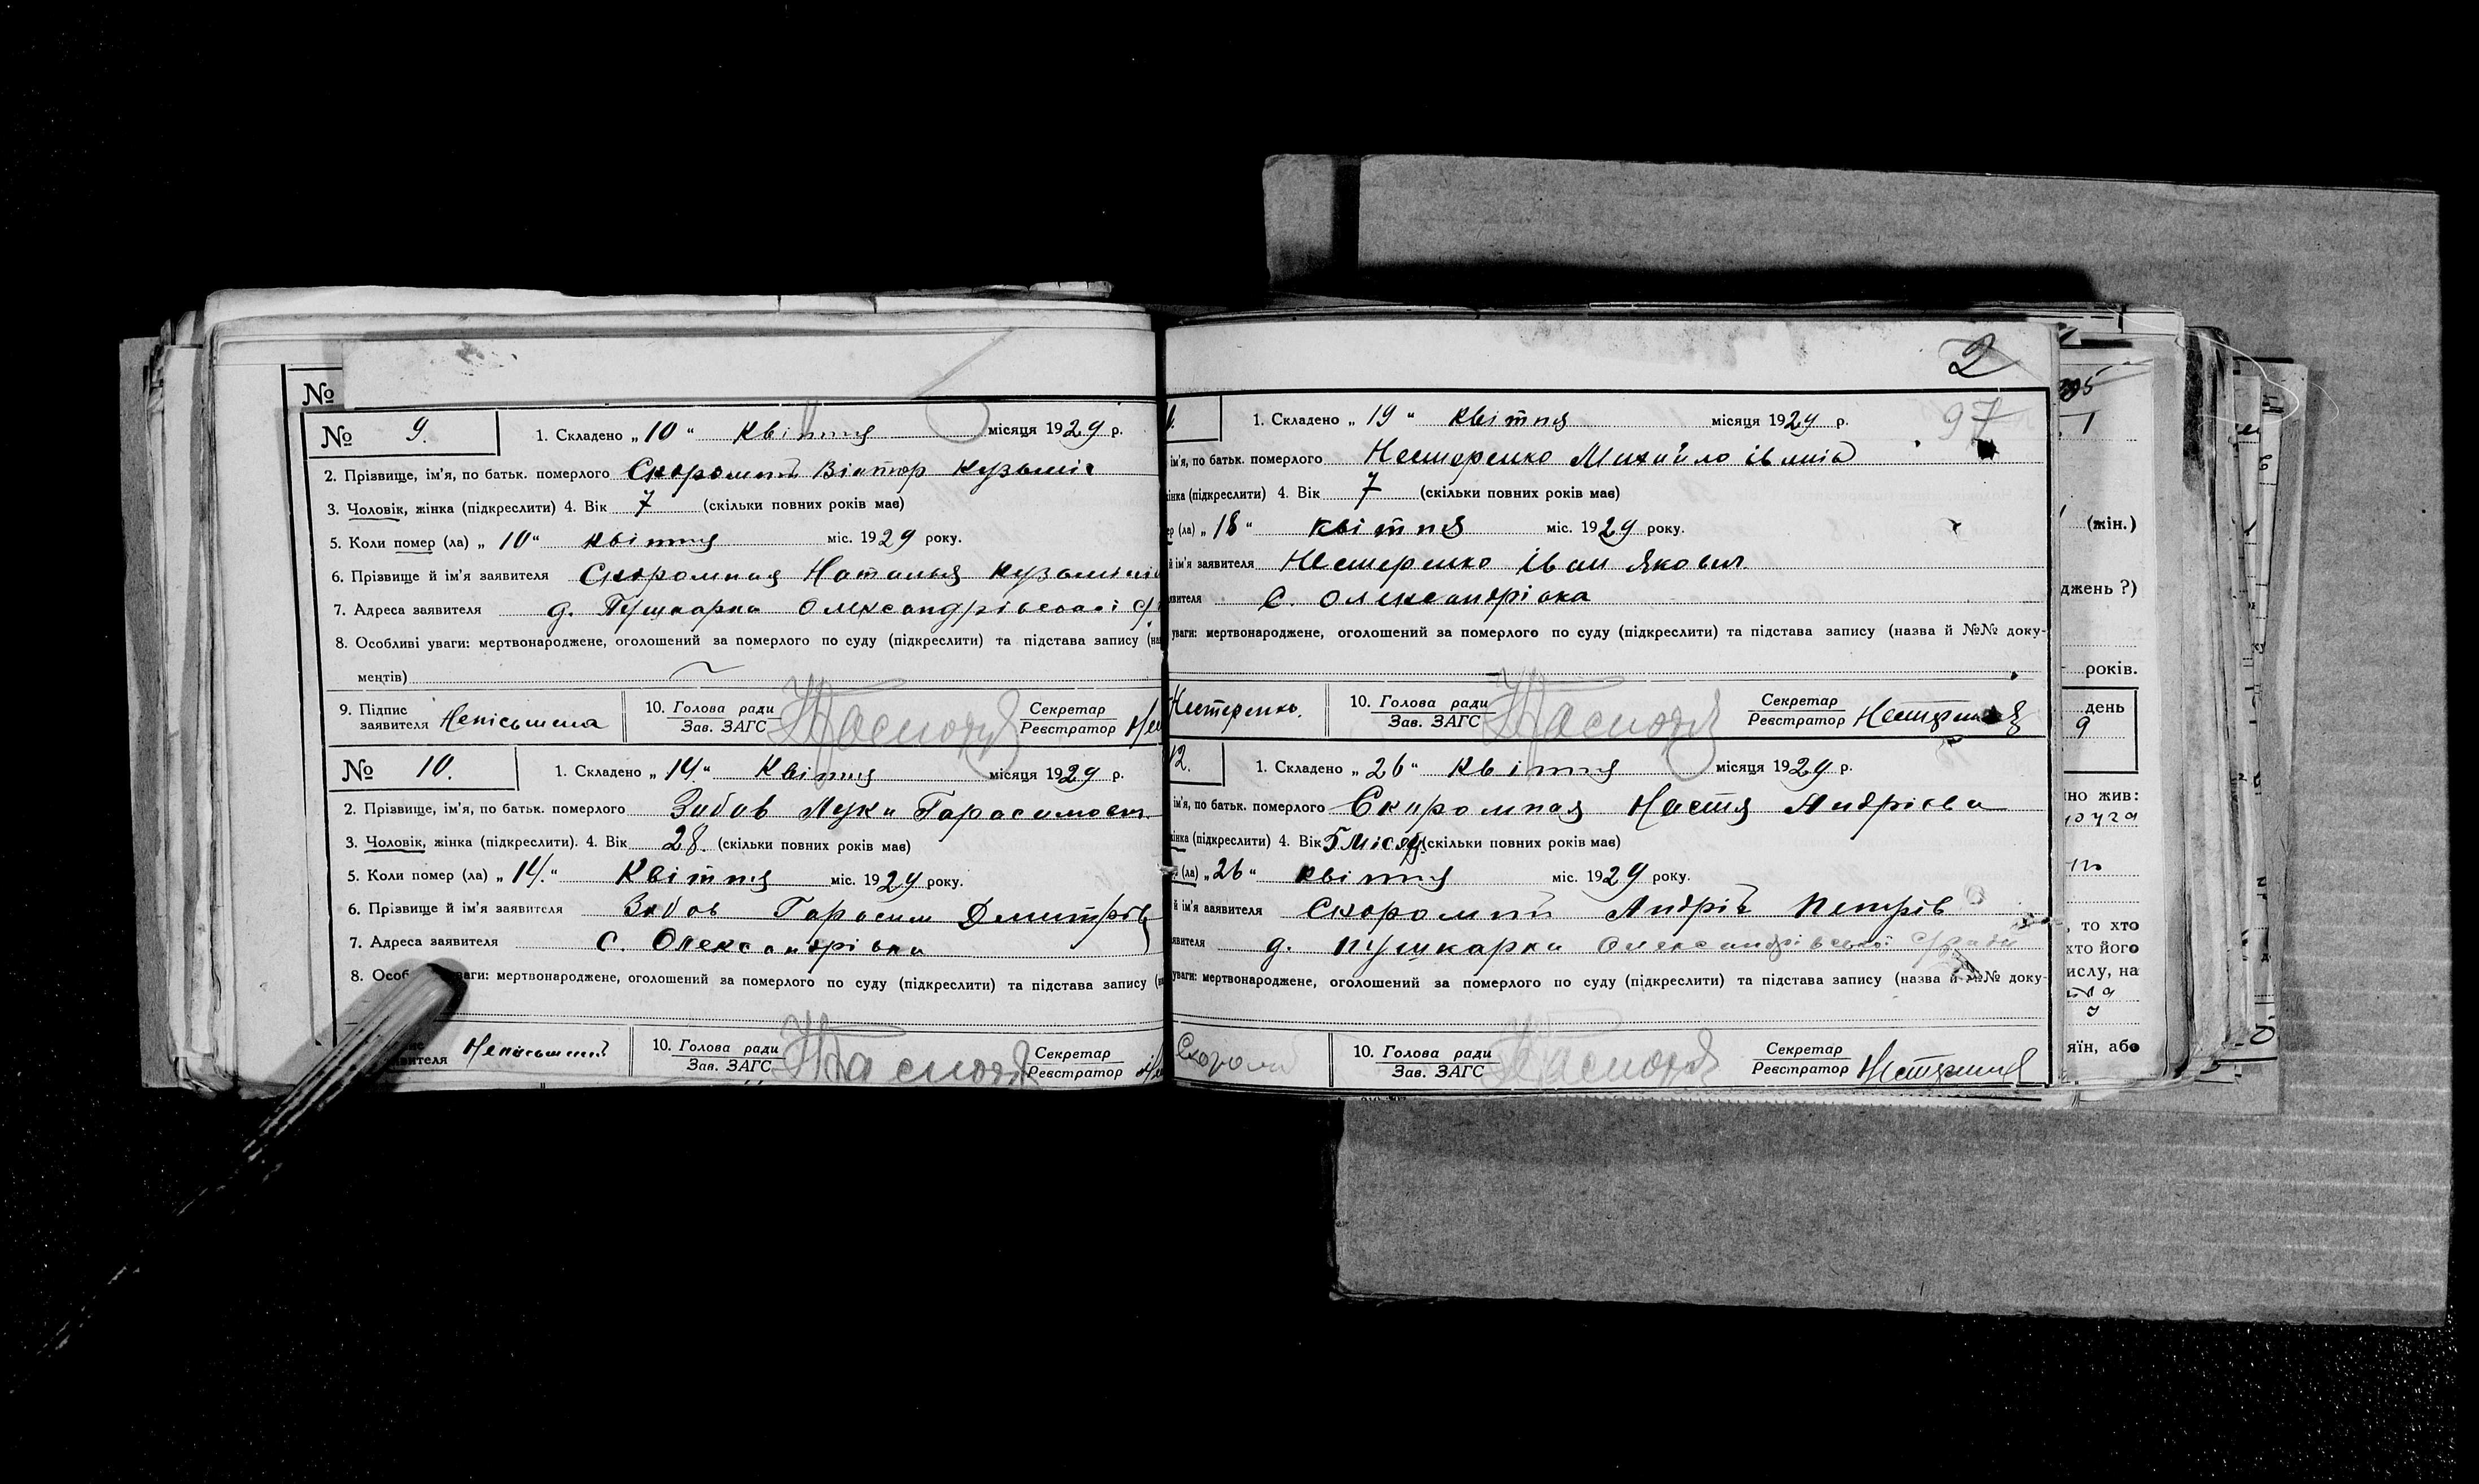 №
№ 9. 1. Складено „ 10 “ Квітня місяця 1929 р.
2. Прізвище, ім'я, по батьк. померлого Скоромний Віктор Кузьміч
3. Чоловік, жінка (підкреслити) 4. Вік 7 (скільки повних років має)
5. Коли помер (ла) „ 10 “ квітня міс. 1929 року.
6. Прізвище й ім'я заявителя Скоромная Наталья
7. Адреса заявителя д. Пушкарка Олександрівської
8. Особливі уваги: мертвонароджене, оголошений за померлого по суду (підкреслити) та підстава запису (на
ментів)
9. Підпис заявителя Непісьмена 10. Голова ради Зав. ЗАГС Секретар Реєстратор
№ 10. 1. Складено „ 14. “ Квітня місяця 1929 р.
2. Прізвище, ім'я, по батьк. померлого Зобов Лука Гарасимович
3. Чоловік, жінка (підкреслити). 4. Вік 28. (скільки повних років має)
5. Коли помер (ла) „ 14. “ Квітня міс. 1929 року.
6. Прізвище й ім'я заявителя Зобов Гарасим Дмитрів
7. Адреса заявителя с. Олександрівка
8. Особ ваги: мертвонароджене, оголошений за померлого по суду (підкреслити) та підстава запису
Непісьмений 10. Голова ради Зав. ЗАГС Секретар Реєстратор
2
97
1. Складено „ 19 “ квітня місяця 1929 р.
ім'я, по батьк. померлого Нестеренко Михайло Іванів
інка (підкреслити) 4. Вік 7 (скільки повних років має)
ер (ла) „ 18 “ квітня міс. 1929 року.
й ім'я заявителя Нестеренко Іван Якович
явителя с. Олександрівка
уваги: мертвонароджене, оголошений за померлого по суду (підкреслити) та підстава запису (назва й №№ доку-
Нестеренко. 10. Голова ради Зав. ЗАГС Секретар Реєстратор Нестеренко
12. 1. Складено „ 26 “ Квітня місяця 1929 р.
ім'я, по батьк. померлого Скоромная Настя Андрієва
жінка (підкреслити) 4. Вік 5 місяц (скільки повних років має)
(ла) „ 26 “ квітня міс. 1929 року.
й ім'я заявителя Скоромний Андрій Петрів
явителя д. Пушкарка Олександрівської с/ради
уваги: мертвонароджене, оголошений за померлого по суду (підкреслити) та підстава запису (назва й №№ доку-
Скором 10. Голова ради Зав. ЗАГС Секретар Реєстратор Нестеренко
(жін.)
джень ?)
років.
день
9
но жив:
, то хто
хто його
ислу, на
яїн, або